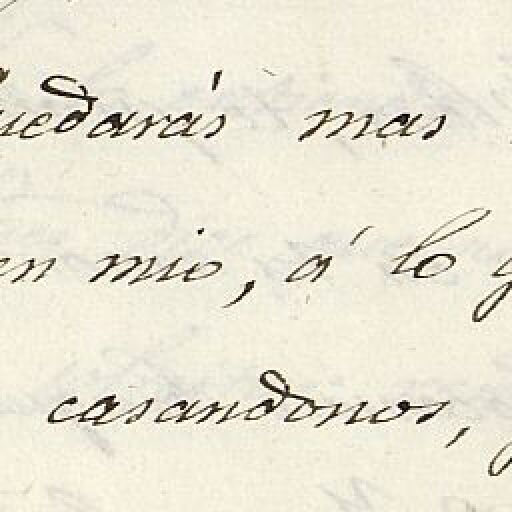 uedarás mas
en mio, á lo
casandonos,